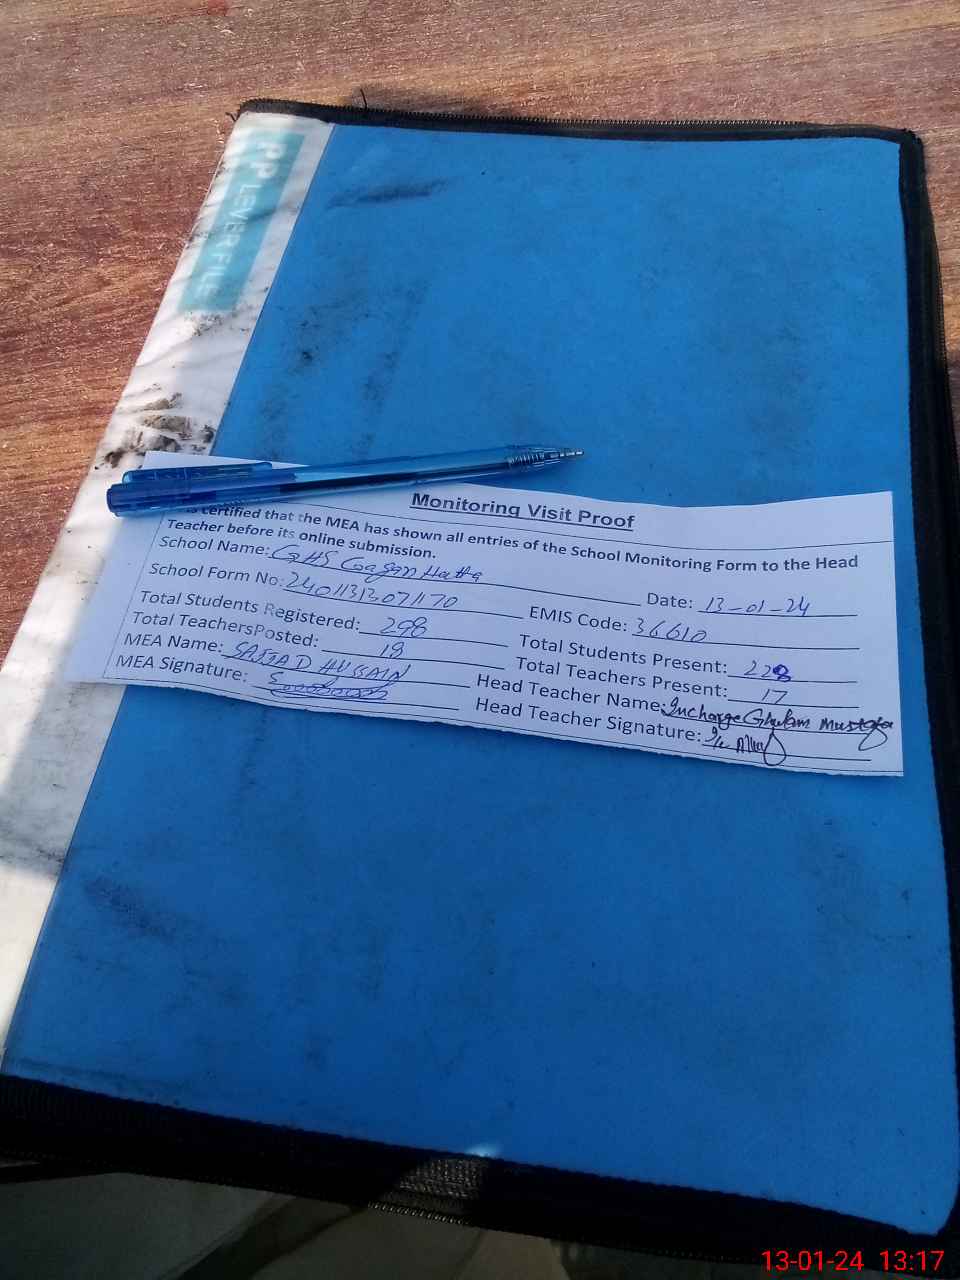 PP LEVER FILE
Monitoring Visit Proof
is certified that the MEA has shown all entries of the School Monitoring Form to the Head
Teacher before its online submission.
School Name: GHS Gagan Hatta Date: 13-01-24
School Form No: 24011313071170 EMIS Code: 36610
Total Students Registered: 298 Total Students Present: 228
Total TeachersPosted: 19 Total Teachers Present: 17
MEA Name: SAJJAD HUSSAIN Head Teacher Name: Incharge Ghulam Mustafa
MEA Signature: Head Teacher Signature:
13-01-24 13:17